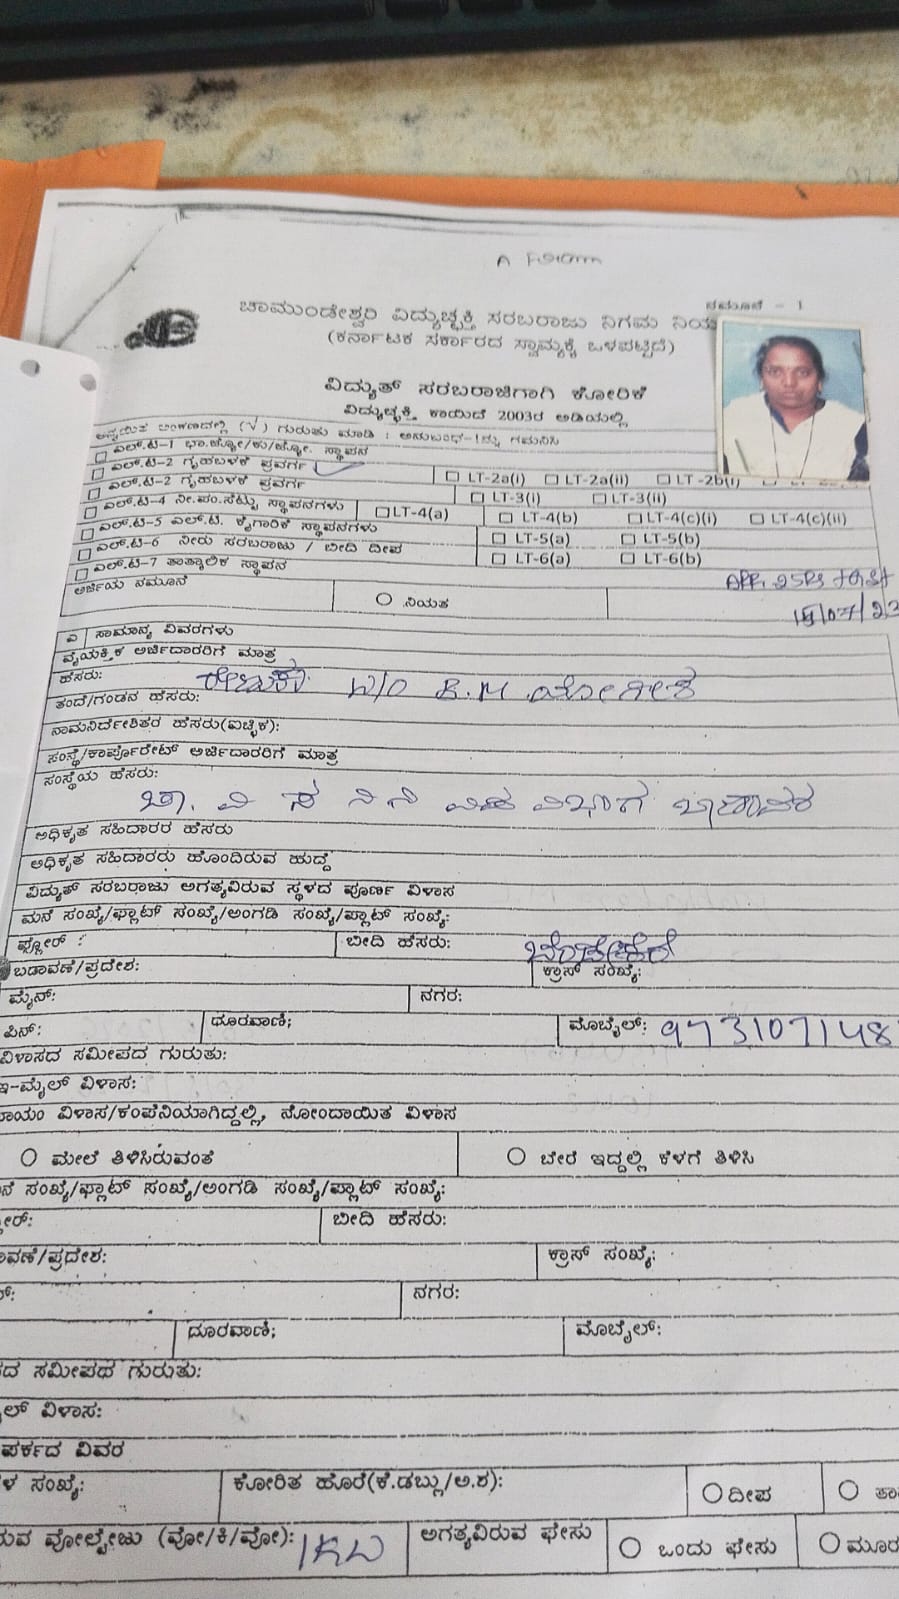 A Form
ನಮೂನೆ - 1
ಚಾಮುಂಡೇಶ್ವರಿ ವಿದ್ಯುಚ್ಛಕ್ತಿ ಸರಬರಾಜು ನಿಗಮ ನಿಯ
(ಕರ್ನಾಟಕ ಸರ್ಕಾರದ ಸ್ವಾಮ್ಯಕ್ಕೆ ಒಳಪಟ್ಟಿದೆ)
ವಿದ್ಯುತ್ ಸರಬರಾಜಿಗಾಗಿ ಕೋರಿಕೆ
ವಿದ್ಯುಚ್ಛಕ್ತಿ ಕಾಯಿದೆ 2003ರ ಅಡಿಯಲ್ಲಿ
ಅನ್ವಯಿತ ಅಂಕಣದಲ್ಲಿ (√) ಗುರುತು ಮಾಡಿ : ಅನುಬಂಧ-1ನ್ನು ಗಮನಿಸಿ
ಎಲ್.ಟಿ-1 ಭಾ.ಜ್ಯೋ/ಕು/ಜ್ಯೋ. ಸ್ಥಾಪನ
ಎಲ್.ಟಿ-2 ಗೃಹಬಳಕೆ ಪ್ರವರ್ಗ LT-2a(i) LT-2a(ii) LT-2b(i)
ಎಲ್.ಟಿ-2 ಗೃಹಬಳಕೆ ಪ್ರವರ್ಗ LT-3(i) LT-3(ii)
ಎಲ್.ಟಿ-4 ನೀ.ಪಂ.ಸೆಟ್ಟು ಸ್ಥಾಪನಗಳು LT-4(a) LT-4(b) LT-4(c)(i) LT-4(c)(ii)
ಎಲ್.ಟಿ-5 ಎಲ್.ಟಿ. ಕೈಗಾರಿಕೆ ಸ್ಥಾಪನಗಳು LT-5(a) LT-5(b)
ಎಲ್.ಟಿ-6 ನೀರು ಸರಬರಾಜು / ಬೀದಿ ದೀಪ LT-6(a) LT-6(b)
ಎಲ್.ಟಿ-7 ತಾತ್ಕಾಲಿಕ ಸ್ಥಾಪನ
ಅರ್ಜಿಯ ನಮೂನೆ ನಿಯತ
15/07/23
ಎ ಸಾಮಾನ್ಯ ವಿವರಗಳು
ವೈಯಕ್ತಿಕ ಅರ್ಜಿದಾರರಿಗೆ ಮಾತ್ರ
ಹೆಸರು: ರೇಣುಕಾ W/O B.M ಯೋಗೀಶ
ತಂದೆ/ಗಂಡನ ಹೆಸರು:
ನಾಮನಿರ್ದೇಶಿತರ ಹೆಸರು(ಐಚ್ಛಿಕ):
ಸಂಸ್ಥೆ/ಕಾರ್ಪೊರೇಟ್ ಅರ್ಜಿದಾರರಿಗೆ ಮಾತ್ರ
ಸಂಸ್ಥೆಯ ಹೆಸರು:
ಚಾ. ವಿ ಸ ನಿ ನಿ ವಿಭಾಗ
ಅಧಿಕೃತ ಸಹಿದಾರರ ಹೆಸರು
ಅಧಿಕೃತ ಸಹಿದಾರರು ಹೊಂದಿರುವ ಹುದ್ದೆ
ವಿದ್ಯುತ್ ಸರಬರಾಜು ಅಗತ್ಯವಿರುವ ಸ್ಥಳದ ಪೂರ್ಣ ವಿಳಾಸ
ಮನೆ ಸಂಖ್ಯೆ/ಫ್ಲಾಟ್ ಸಂಖ್ಯೆ/ಅಂಗಡಿ ಸಂಖ್ಯೆ/ಪ್ಲಾಟ್ ಸಂಖ್ಯೆ:
ಫ್ಲೋರ್ : ಬೀದಿ ಹೆಸರು:
ಬಡಾವಣೆ/ಪ್ರದೇಶ: ಕ್ರಾಸ್ ಸಂಖ್ಯೆ:
ಮೈನ್: ನಗರ:
ಪಿನ್: ದೂರವಾಣಿ; ಮೊಬೈಲ್: 973107148
ವಿಳಾಸದ ಸಮೀಪದ ಗುರುತು:
ಇ-ಮೈಲ್ ವಿಳಾಸ:
ಾಯಂ ವಿಳಾಸ/ಕಂಪೆನಿಯಾಗಿದ್ದಲ್ಲಿ, ನೋಂದಾಯಿತ ವಿಳಾಸ
ಮೇಲೆ ತಿಳಿಸಿರುವಂತೆ ಬೇರೆ ಇದ್ದಲ್ಲಿ ಕೆಳಗೆ ತಿಳಿಸಿ
ನೆ ಸಂಖ್ಯೆ/ಫ್ಲಾಟ್ ಸಂಖ್ಯೆ/ಅಂಗಡಿ ಸಂಖ್ಯೆ/ಪ್ಲಾಟ್ ಸಂಖ್ಯೆ:
ೋರ್: ಬೀದಿ ಹೆಸರು:
ಾವಣೆ/ಪ್ರದೇಶ: ಕ್ರಾಸ್ ಸಂಖ್ಯೆ:
ನಗರ:
ದೂರವಾಣಿ; ಮೊಬೈಲ್:
ದ ಸಮೀಪಥ ಗುರುತು:
ೈಲ್ ವಿಳಾಸ:
ಪರ್ಕದ ವಿವರ
ಳ ಸಂಖ್ಯೆ: ಕೋರಿತ ಹೊರೆ(ಕೆ.ಡಬ್ಲು/ಅ.ಶ): ದೀಪ ತಾ
ರುವ ವೋಲ್ಟೇಜು (ವೋ/ಕಿ/ವೋ): 1KW ಅಗತ್ಯವಿರುವ ಫೇಸು ಒಂದು ಫೇಸು ಮೂರ